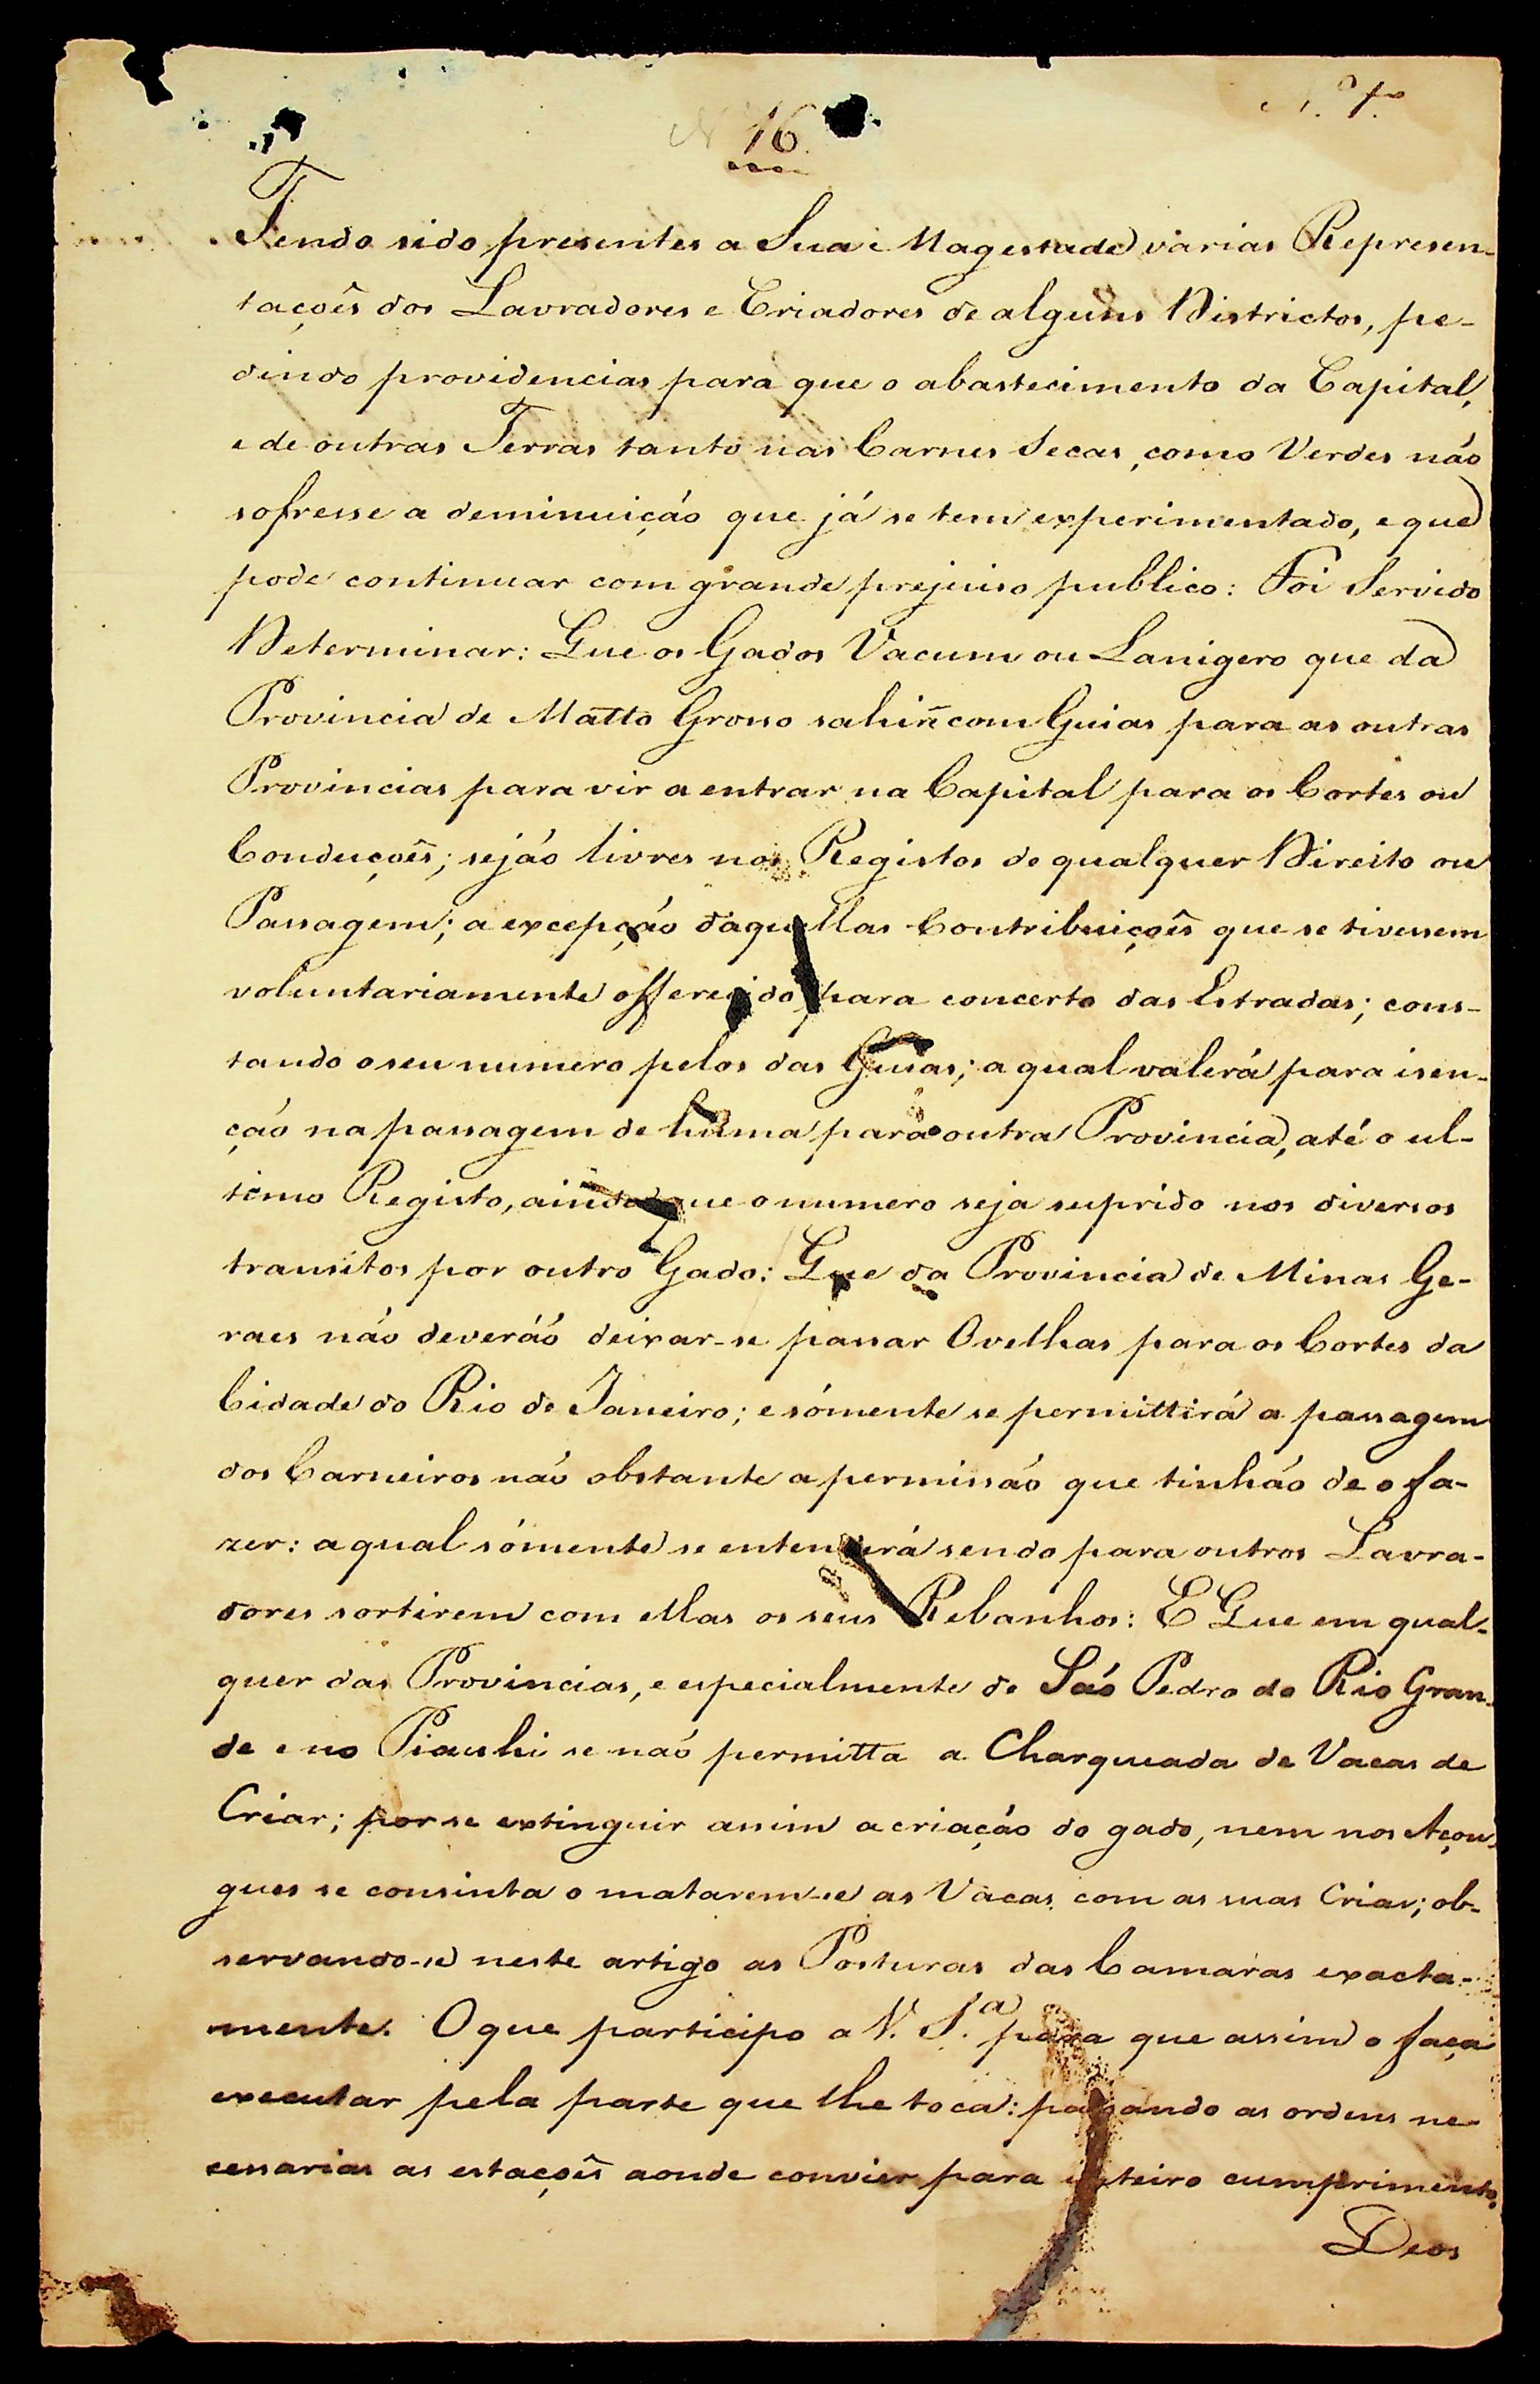 N. 7.
N 16
Tendo sido presentes a Sua Magestade varias Represen-
taçoês dos Lavradores e Criadores de alguns Districtos, pe-
dindo providencias para que o abastecimento da Capital,
e de outras Terras tanto nas Carnes Secas, como Verdes náo
sofresse a deminuiçáo que já se tem experimentado, e que
pode continuar com grande prejuiso publico: Foi Servido
Determinar: Que os Gados Vacum ou Lanigero que da
Provincia de Matto Grosso sahirẽ com Guias para as outras
Provincias para vir a entrar na Capital para os Cortes ou
Conduçoês; sejáo livres nos Registos de qualquer Direito ou
Passagem; a excepçáo daquellas Contribuiçoês que se tivessem
voluntariamente offerecido para concerto das Estradas; cons-
tando o seu numero pelos das Guias; a qual valerá para isen-
çáo na passagem de huma para outra Provincia, até o ul-
timo Registo, ainda que o numero seja suprido nos diversos
transitos por outro Gado: Que da Provincia de Minas Ge-
raes náo deveráõ deixar-se passar Ovelhas para os Cortes da
Cidade do Rio de Janeiro; e sómente se permittirá a passagem
dos Carneiros náo obstante a permissáo que tinháo de o fa-
zer: a qual sómente se entenderá sendo para outros Lavra-
dores sortirem com ellas os seus Rebanhos: E Que em qual-
quer das Provincias, e especialmente de Sáo Pedro do Rio Gran-
de e no Piauhi se naó permitta a Charqueada de Vacas de
Criar; por se extinguir assim a criaçáo do gado, nem nos Açou-
gues se consinta o matarem-se as Vacas com as suas Crias; ob-
servando-se neste artigo as Posturas das Camaras exacta-
mente. O que participo a V. S.ª para que assim o faça
executar pela parte que lhe toca: passando as ordens ne-
cessarias as estaçoês aonde convier para inteiro cumprimento.
Deos